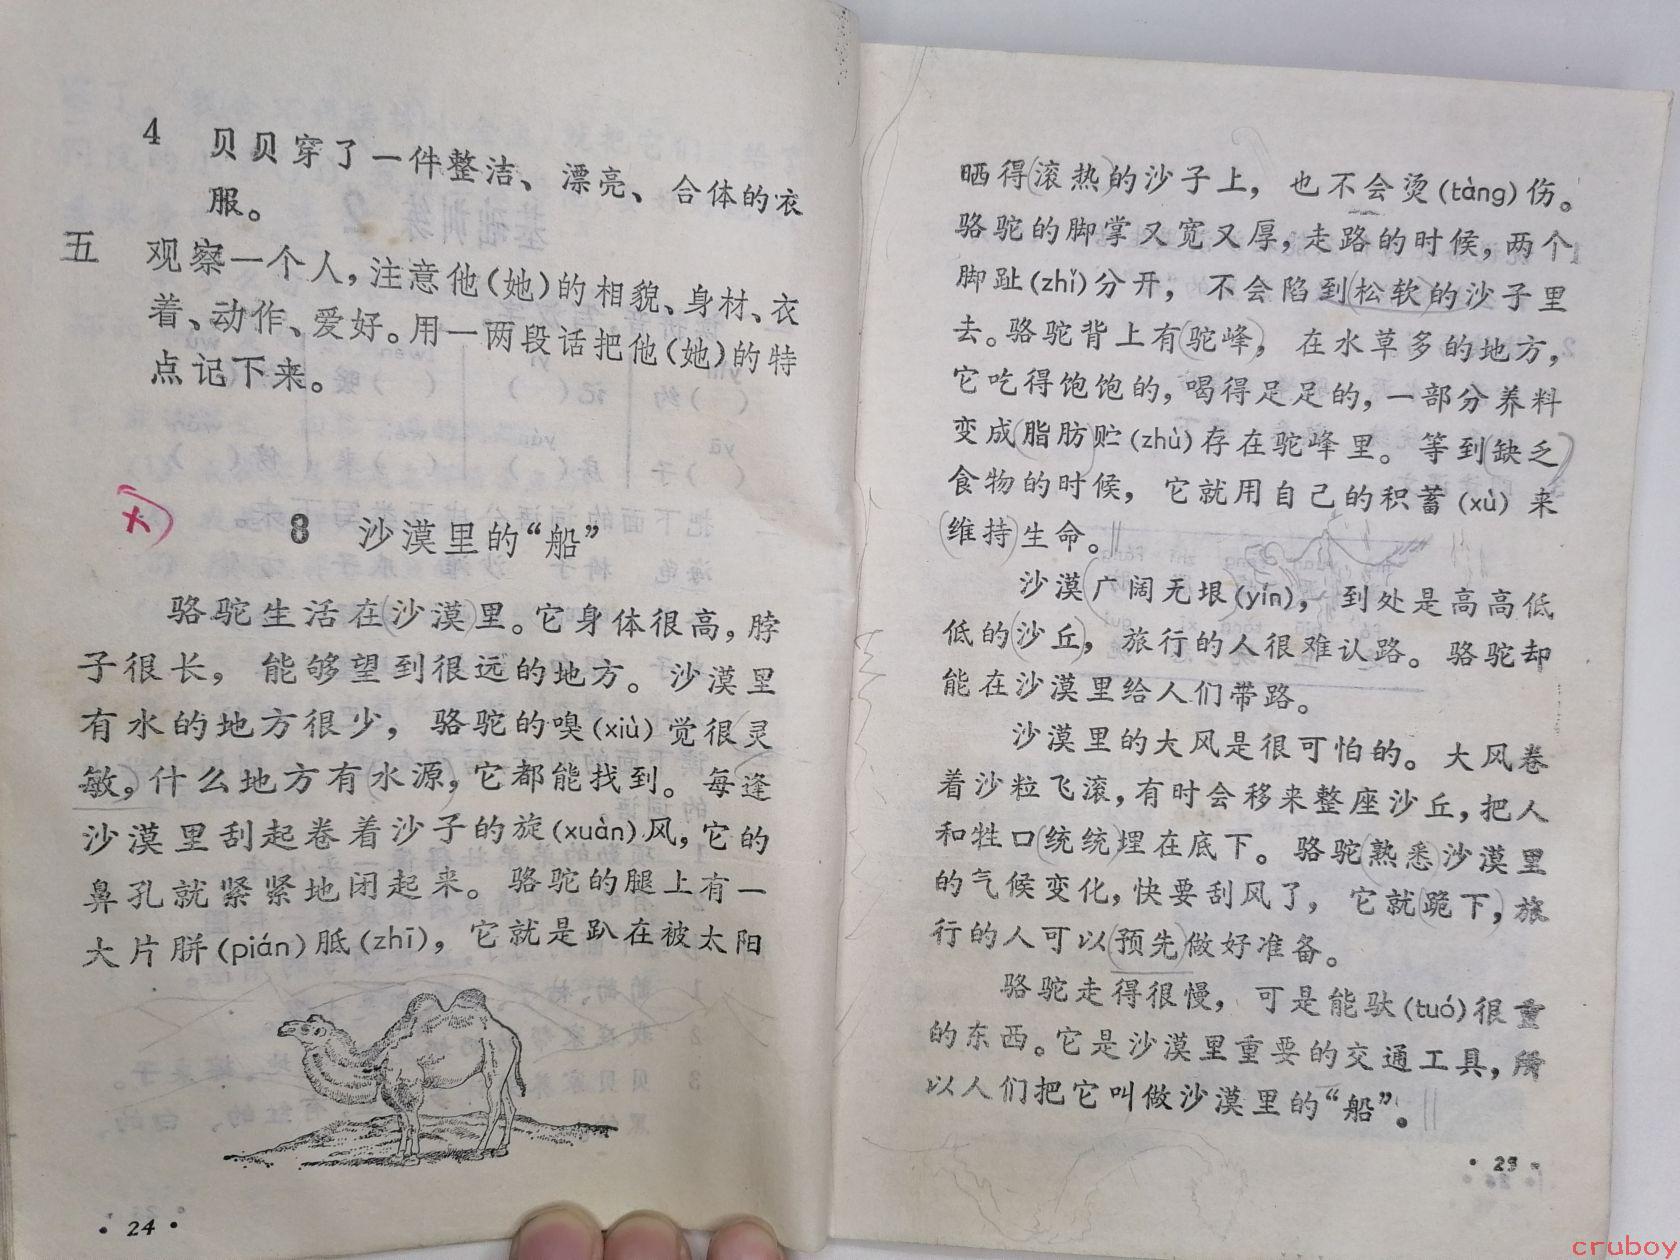 4 贝贝穿了一件整洁、漂亮、合体的衣
服。
五 观察一个人，注意他(她)的相貌、身材、衣
着、动作、爱好。用一两段话把他(她)的特
点记下来。
8 沙漠里的“船”
骆驼生活在沙漠里。它身体很高，脖
子很长，能够望到很远的地方。沙漠里
有水的地方很少，骆驼的嗅(xiù)觉很灵
敏，什么地方有水源，它都能找到。每逢
沙漠里刮起卷着沙子的旋(xuàn)风，它的
鼻孔就紧紧地闭起来。骆驼的腿上有一
大片胼(pián)胝(zhī)，它就是趴在被太阳
• 24 •
晒得滚热的沙子上，也不会烫(tàng)伤。
骆驼的脚掌又宽又厚，走路的时候，两个
脚趾(zhǐ)分开，不会陷到松软的沙子里
去。骆驼背上有驼峰，在水草多的地方，
它吃得饱饱的，喝得足足的，一部分养料
变成脂肪贮(zhù)存在驼峰里。等到缺乏
食物的时候，它就用自己的积蓄(xù)来
维持生命。
沙漠广阔无垠(yín)，到处是高高低
低的沙丘，旅行的人很难认路。骆驼却
能在沙漠里给人们带路。
沙漠里的大风是很可怕的。大风卷
着沙粒飞滚，有时会移来整座沙丘，把人
和牲口统统埋在底下。骆驼熟悉沙漠里
的气候变化，快要刮风了，它就跪下，旅
行的人可以预先做好准备。
骆驼走得很慢，可是能驮(tuó)很重
的东西。它是沙漠里重要的交通工具，所
以人们把它叫做沙漠里的“船”。
• 25 •
cruboy